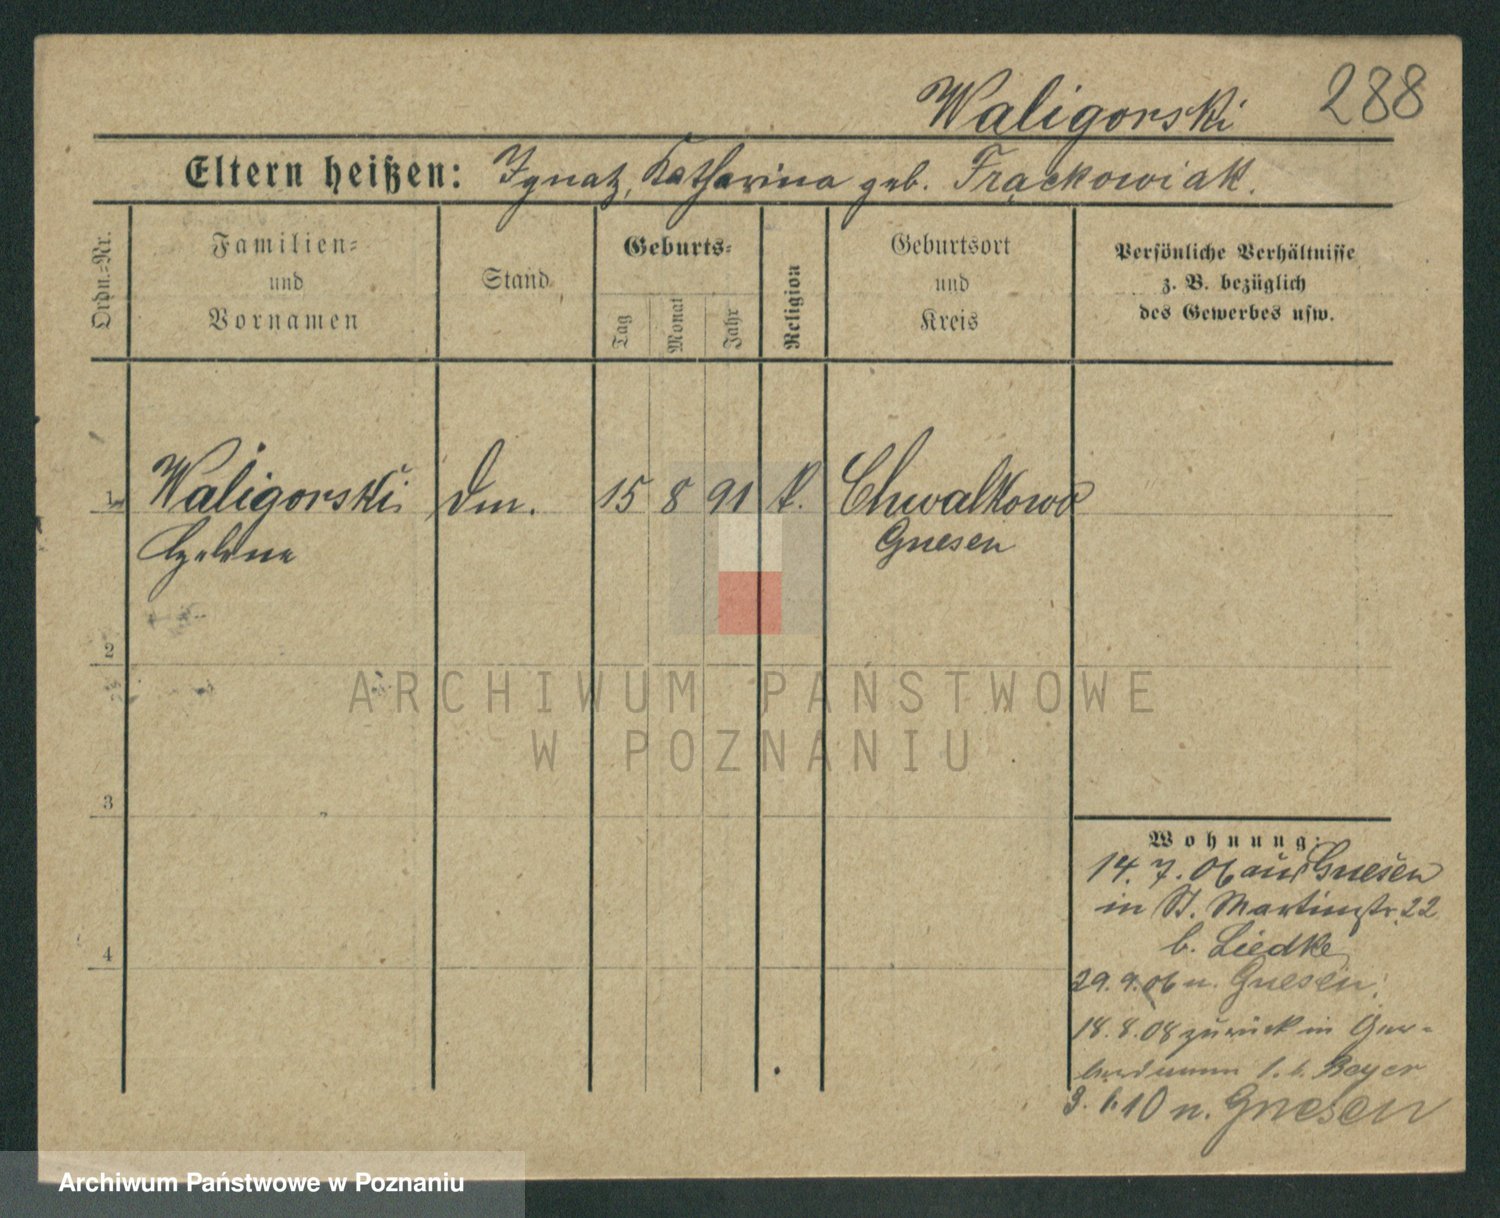 Waligorski 288
Eltern heißen: Ignatz, Katharina geb. Frąckowiak.
Ordn.-Nr.
Familien-
und
Vornamen
Stand
Geburts-
Tag
Monat
Jahr
Religion
Geburtsort
und
Kreis
Persönliche Verhältnisse
z. B. bezüglich
des Gewerbes usw.
1 Waligorski 15 8 91 k. Chwalkowo
Helene Gnesen
2
3
4
Wohnung:
14. 7. 06 aus Gnesen
in St. Martinstr. 22
b. Liedke
29. 9. 06 n. Gnesen.
18. 8. 08 zurück in
Beyer
10 n. Gnesen
ARCHIWUM PAŃSTWOWE
W POZNANIU
Archiwum Państwowe w Poznaniu